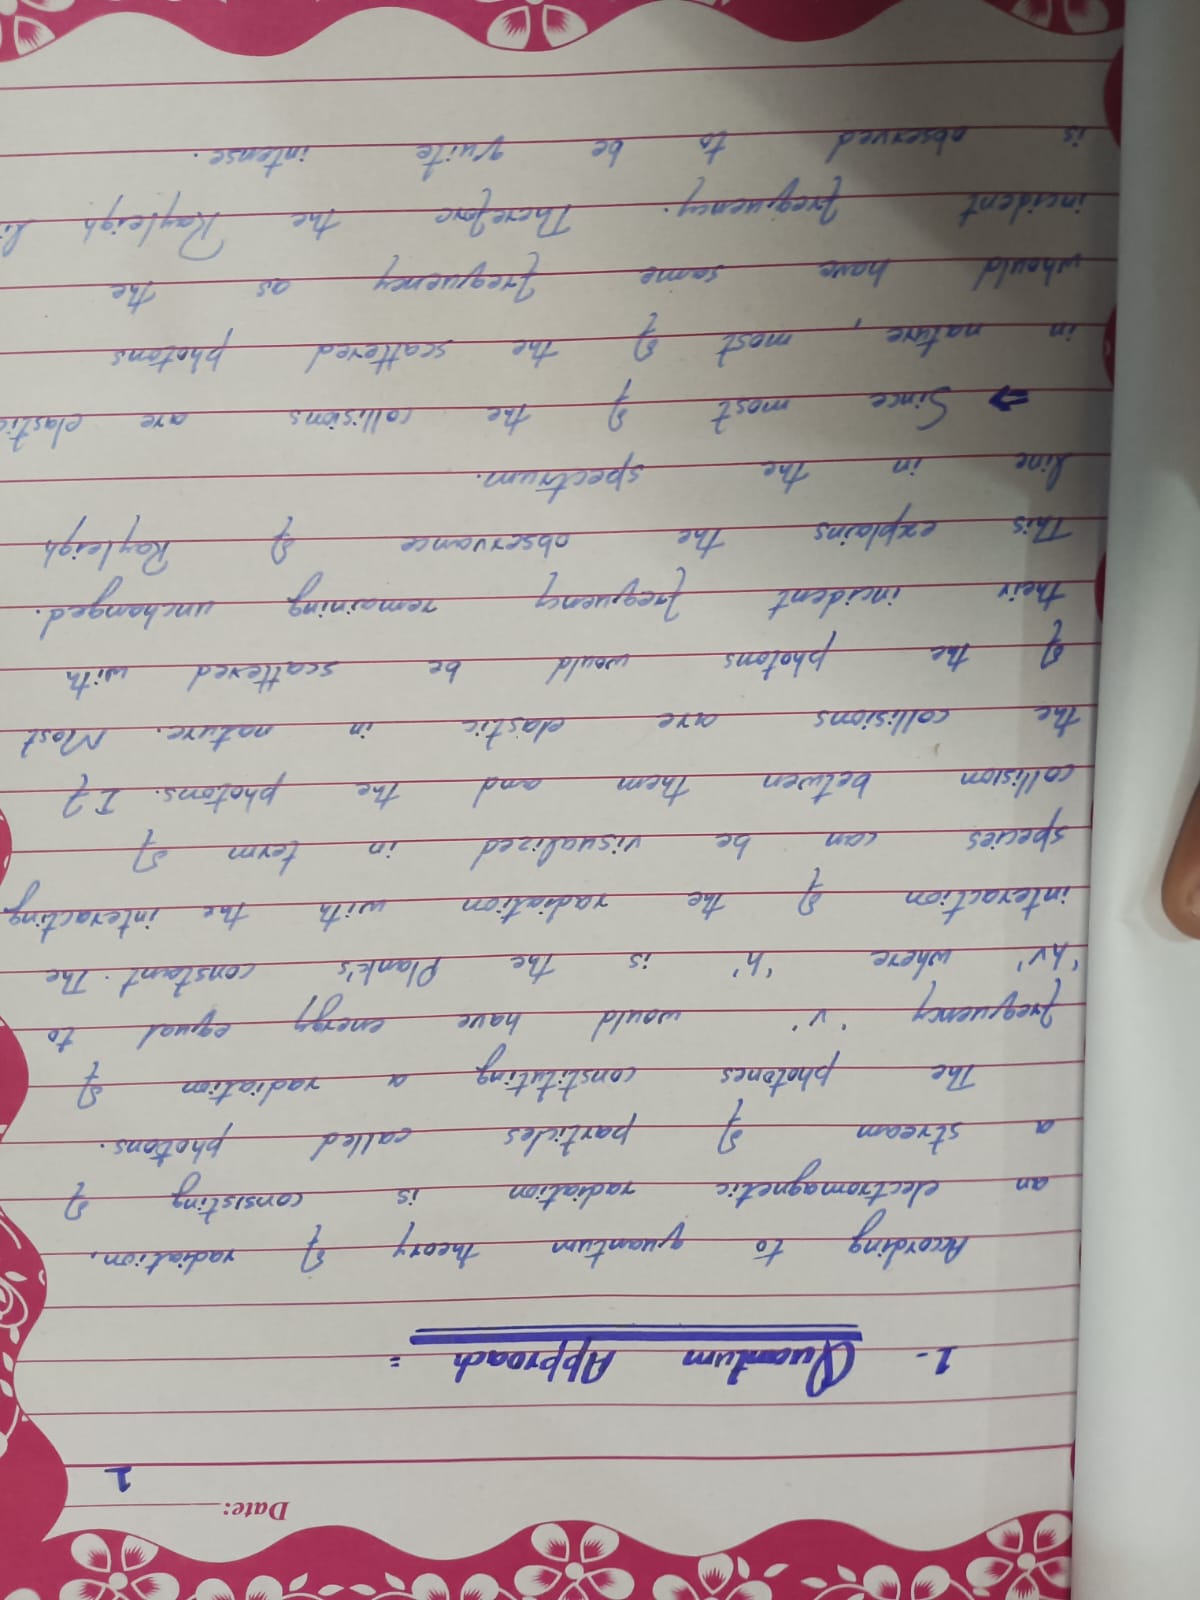 Date:
1
1- Quantum Approach :
According to quantum theory of radiation,
an electromagnetic radiation is consisting of
a stream of particles called photons.
The photones constituting a radiation of
frequency 'v' would have energy equal to
'hv' where 'h' is the Plank's constant. The
interaction of the radiation with the interacting
species can be visualized in term of
collision betwen them and the photons. If
the collisions are elastic in nature. Most
of the photons would be scattered with
their incident frequency remaining unchanged.
This explains the observance of Rayleigh
line in the spectrum.
⇒ Since most of the collisions are elastic
in nature, most of the scattered photons
whould have same frequency as the
incident frequency. Therefore the Rayleigh li
is observed to be quite intense.